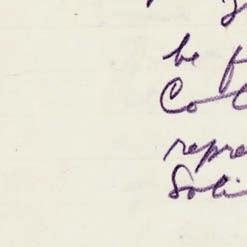 be f
Co
repre
Soli